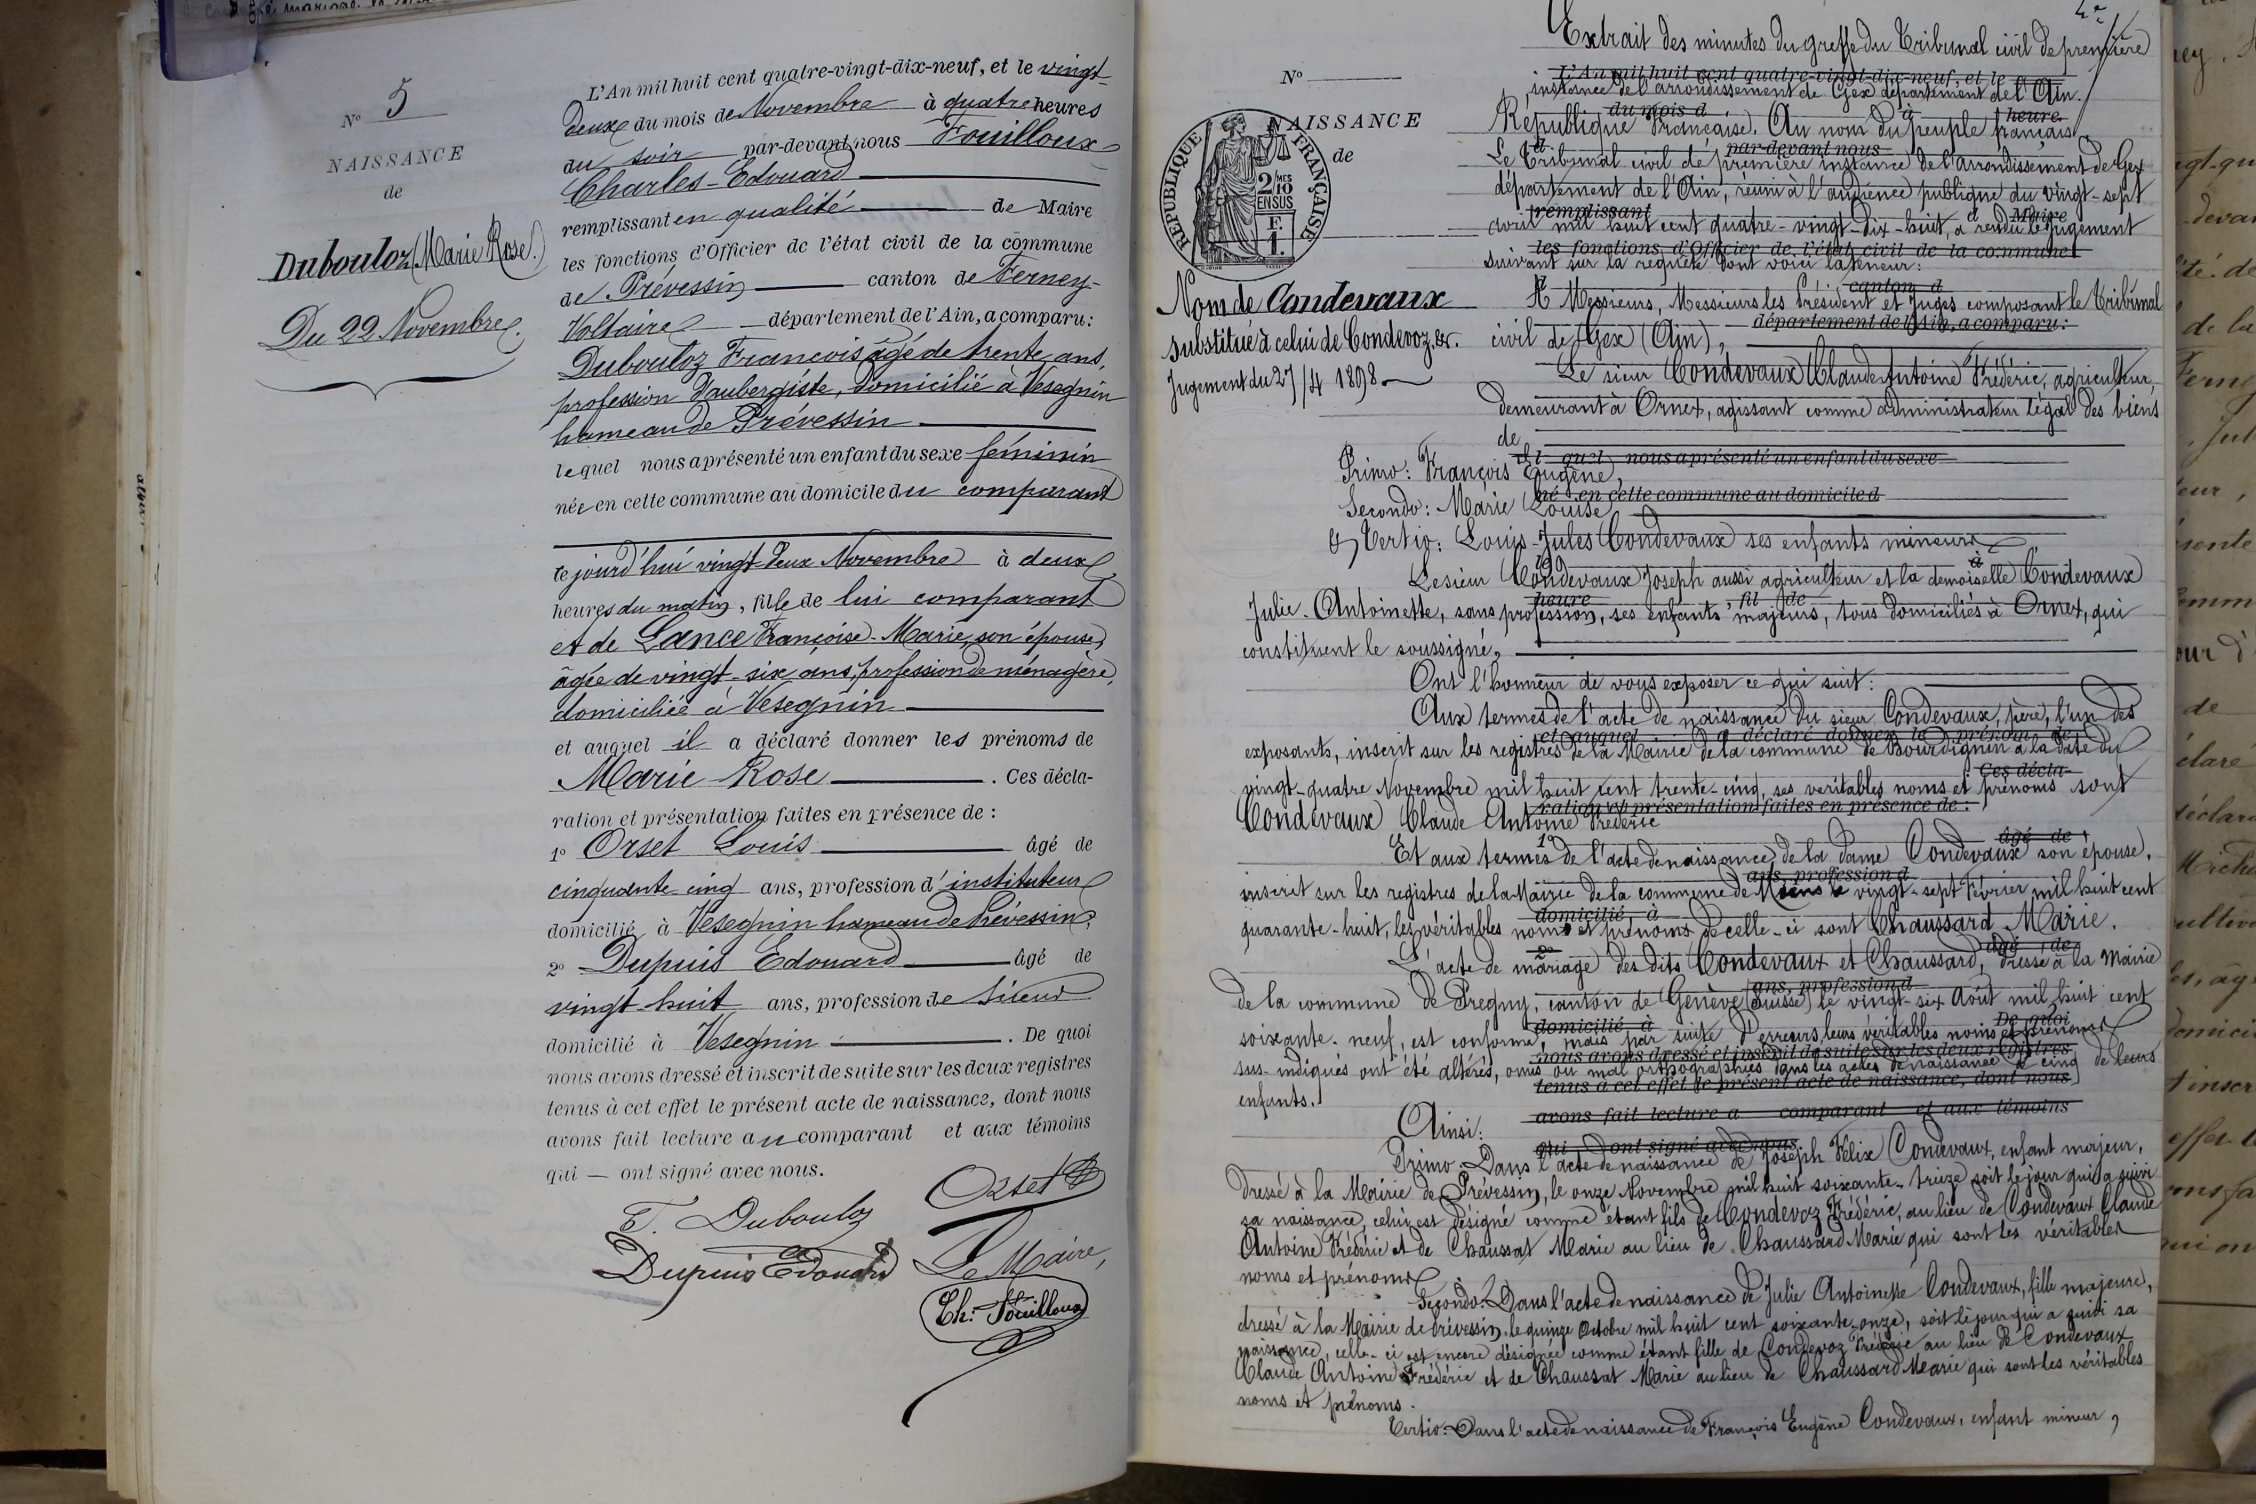 N° 5
NAISSANCE
de
Dubouloz (Marie Rose.)
Du 22 Novembre.
L'An mil huit cent quatre-vingt-dix-neuf, et le vingt-
deux du mois de Novembre à quatre heures
du soir par-devant nous Fouilloux
Charles-Edouard
remplissant en qualité de Maire
les fonctions d'Officier de l'état civil de la commune
de Prévessin canton de Ferney-
Voltaire département de l'Ain, a comparu:
Dubouloz François âgé de trente ans,
profession d'aubergiste, domicilié à Vesegnin
hameau de Prévessin
lequel nous a présenté un enfant du sexe féminin
née en cette commune au domicile du comparant
cejourd'hui vingt-deux Novembre à deux
heures du matin, fille de lui comparant
et de Lance Françoise-Marie, son épouse,
âgée de vingt-six ans, profession de ménagère,
domiciliée à Vesegnin
et auquel il a déclaré donner les prénoms de
Marie Rose. Ces décla-
ration et présentation faites en présence de :
1° Orset Louis âgé de
cinquante-cinq ans, profession d'instituteur
domicilié à Vesegnin hameau de Prévessin;
2° Dupuis Edouard âgé de
vingt-huit ans, profession de
domicilié à Vesegnin. De quoi
nous avons dressé et inscrit de suite sur les deux registres
tenus à cet effet le présent acte de naissance, dont nous
avons fait lecture au comparant et aux témoins
qui — ont signé avec nous.
F. Dubouloz Orset
Dupuis Edouard Le Maire,
Ch. Fouilloux
N°
NAISSANCE
de
RÉPUBLIQUE FRANÇAISE
2/10
MES
EN SUS
F.
1.
Nom de Condevaux
substitué à celui de Condevoz, &c.
Jugement du 27/4 1898
Extrait des minutes du greffe du Tribunal civil de première
L'An mil huit cent quatre-vingt-dix-neuf, et le
instance de l'arrondissement de Gex département de l'Ain.
du mois d à heure
République Française. Au nom du peuple français.
par-devant nous
Le Tribunal civil de première instance de l'arrondissement de Gex
département de l'Ain, réuni à l'audience publique du vingt-sept
remplissant d Maire
avril mil huit cent quatre-vingt-dix-huit, a rendu le jugement
les fonctions d'Officier de l'état civil de la commune
suivant sur la requête dont voici la teneur:
canton d
A Messieurs, Messieurs les Président et Juges composant le Tribunal
département de l'Ain, a comparu:
civil de Gex (Ain),
Le sieur Condevaux Claude Antoine Frédéric, agriculteur,
demeurant à Ornex, agissant comme administrateur légal des biens
de
l quel nous a présenté un enfant du sexe
Primo: François Eugène,
né en cette commune au domicile d
Secondo: Marie Louise,
& Tertio: Louis-Jules Condevaux ses enfants mineurs
le à
Le sieur Condevaux Joseph aussi agriculteur et la demoiselle Condevaux
heure fil de
Julie-Antoinette, sans profession, ses enfants majeurs, tous domiciliés à Ornex, qui
constituent le soussigné,
Ont l'honneur de vous exposer ce qui suit:
Aux termes de l'acte de naissance du sieur Condevaux, père, l'un des
et auquel a déclaré donner le prénom de
exposants, inscrit sur les registres de la Mairie de la commune de Bourdignin à la date du
Ces décla-
vingt-quatre Novembre mil huit cent trente-cinq, ses véritables noms et prénoms sont
ration et présentation faites en présence de :
Condevaux Claude Antoine Frédéric
1° âgé de
Et aux termes de l'acte de naissance de la dame Condevaux son épouse,
ans, profession d
inscrit sur les registres de la Mairie de la commune de Moens le vingt-sept Février mil huit cent
domicilié à
quarante-huit, les véritables noms et prénoms de celle-ci sont Chaussard Marie.
2° âgé de
L'acte de mariage des dits Condevaux et Chaussard, dressé à la Mairie
ans, profession d
de la commune de Pregny, canton de Genève (Suisse) le vingt-six Août mil huit cent
domicilié à De quoi
soixante-neuf, est conforme, mais par suite d'erreurs, leurs véritables noms et prénoms
nous avons dressé et inscrit de suite sur les deux registres
sus-indiqués ont été altérés, omis ou mal orthographiés dans les actes de naissance de cinq de leurs
tenus à cet effet le présent acte de naissance, dont nous
enfants.
avons fait lecture a comparant et aux témoins
Ainsi:
qui ont signé avec nous.
Primo. Dans l'acte de naissance de Joseph Félix Condevaux, enfant majeur,
dressé à la Mairie de Prévessin, le onze Novembre mil huit soixante-treize soit le jour qui a suivi
sa naissance, celui est désigné comme étant fils de Condevoz Frédéric, au lieu de Condevaux Claude
Antoine Frédéric et de Chaussat Marie au lieu de Chaussard Marie qui sont les véritables
noms et prénoms.
Secondo. Dans l'acte de naissance de Julie Antoinette Condevaux, fille majeure,
dressé à la Mairie de Prévessin, le quinze Octobre mil huit cent soixante-onze, soit le jour qui a suivi sa
naissance, celle-ci est encore désignée comme étant fille de Condevoz Frédéric au lieu de Condevaux
Claude Antoine Frédéric et de Chaussat Marie au lieu de Chaussard Marie qui sont les véritables
noms et prénoms.
Tertio: Dans l'acte de naissance de François Eugène Condevaux, enfant mineur,